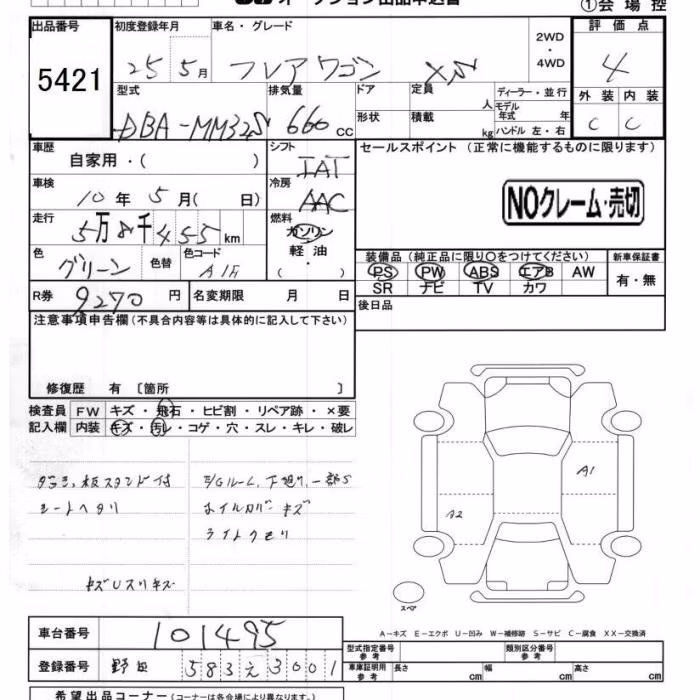 オークション出品申込書
①会場控
出品番号
5421
初度登録年月
25 5月
車名・グレード
フレアワゴン XS
2WD
・
4WD
評価点
4
型式
DBA-MM32S
排気量
660cc
ドア
定員
人
形状
積載
kg
ディーラー・並行
モデル
年式 年
ハンドル 左・右
外装 内装
C C
車歴
自家用・( )
シフト
IAT
セールスポイント (正常に機能するものに限ります)
車検
10年 5月( 日)
冷房
AAC
NOクレーム・売切
走行
5万8千455km
燃料
ガソリン
・
軽油
( ・ )
色
グリーン
色替
色コード
装備品 (純正品に限り○をつけてください)
PS PW ABS エアB AW
SR ナビ TV カワ
新車保証書
有・無
R券
9270円
名変期限 月 日
後日品
注意事項申告欄 (不具合内容等は具体的に記入して下さい)
修復歴 有 〔箇所 〕
検査員 FW キズ・飛石・ヒビ割・リペア跡・×要
記入欄 内装 キズ・汚レ・コゲ・穴・スレ・キレ・破レ
シートヘタリ
ホイルカバーキズ
ライトクモリ
キズUスリキズ
A1
A2
スペア
A-キズ E-エクボ U-凹み W-補修跡 S-サビ C-腐食 XX-交換済
車台番号
101495
型式指定番号
参考
類別区分番号
参考
登録番号
583え3001
車庫証明用
参考
長さ cm 幅 cm 高さ cm
希望出品コーナー (コーナーは各会場により異なります。)